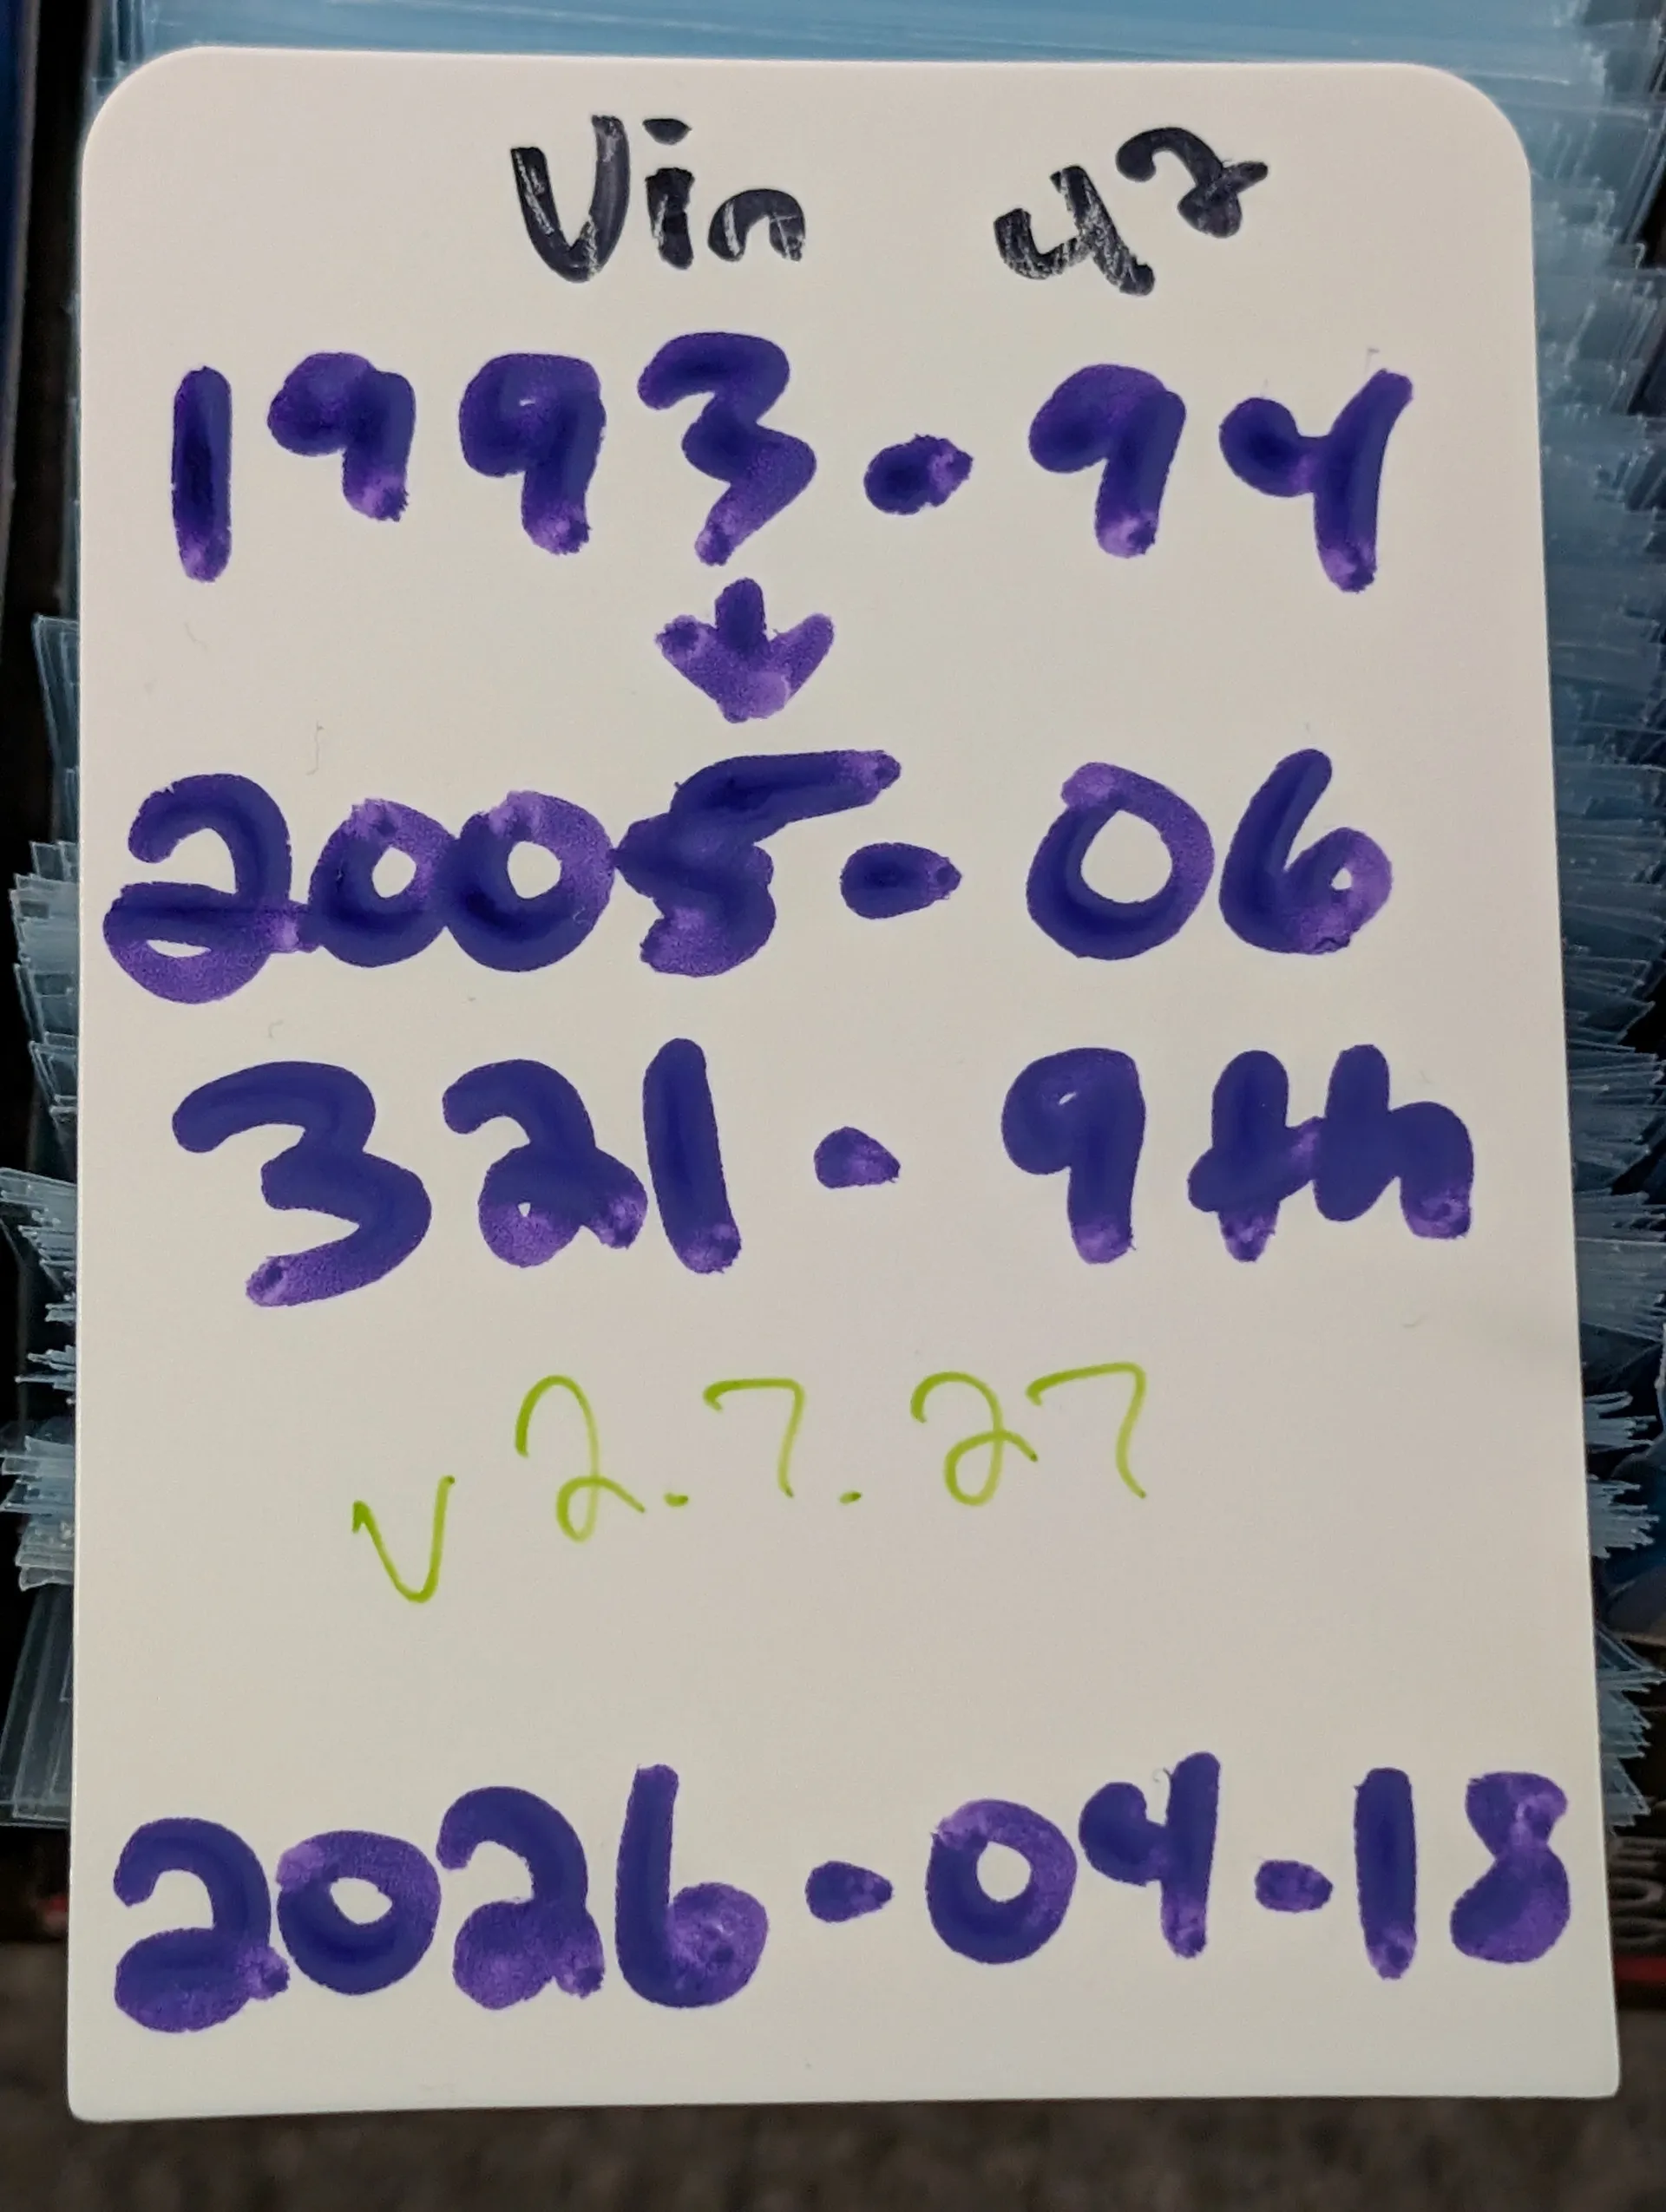 Vin 42
1993-94
↓
2005-06
321-9th
v2.7.27
2026-04-18